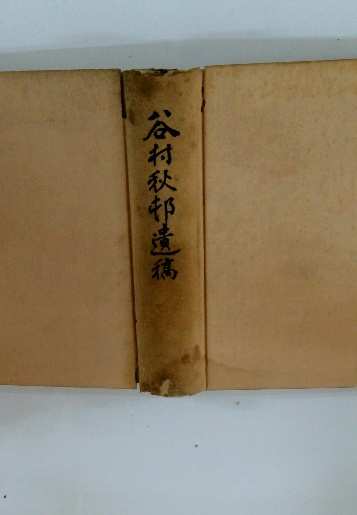 谷村秋邨遺稿